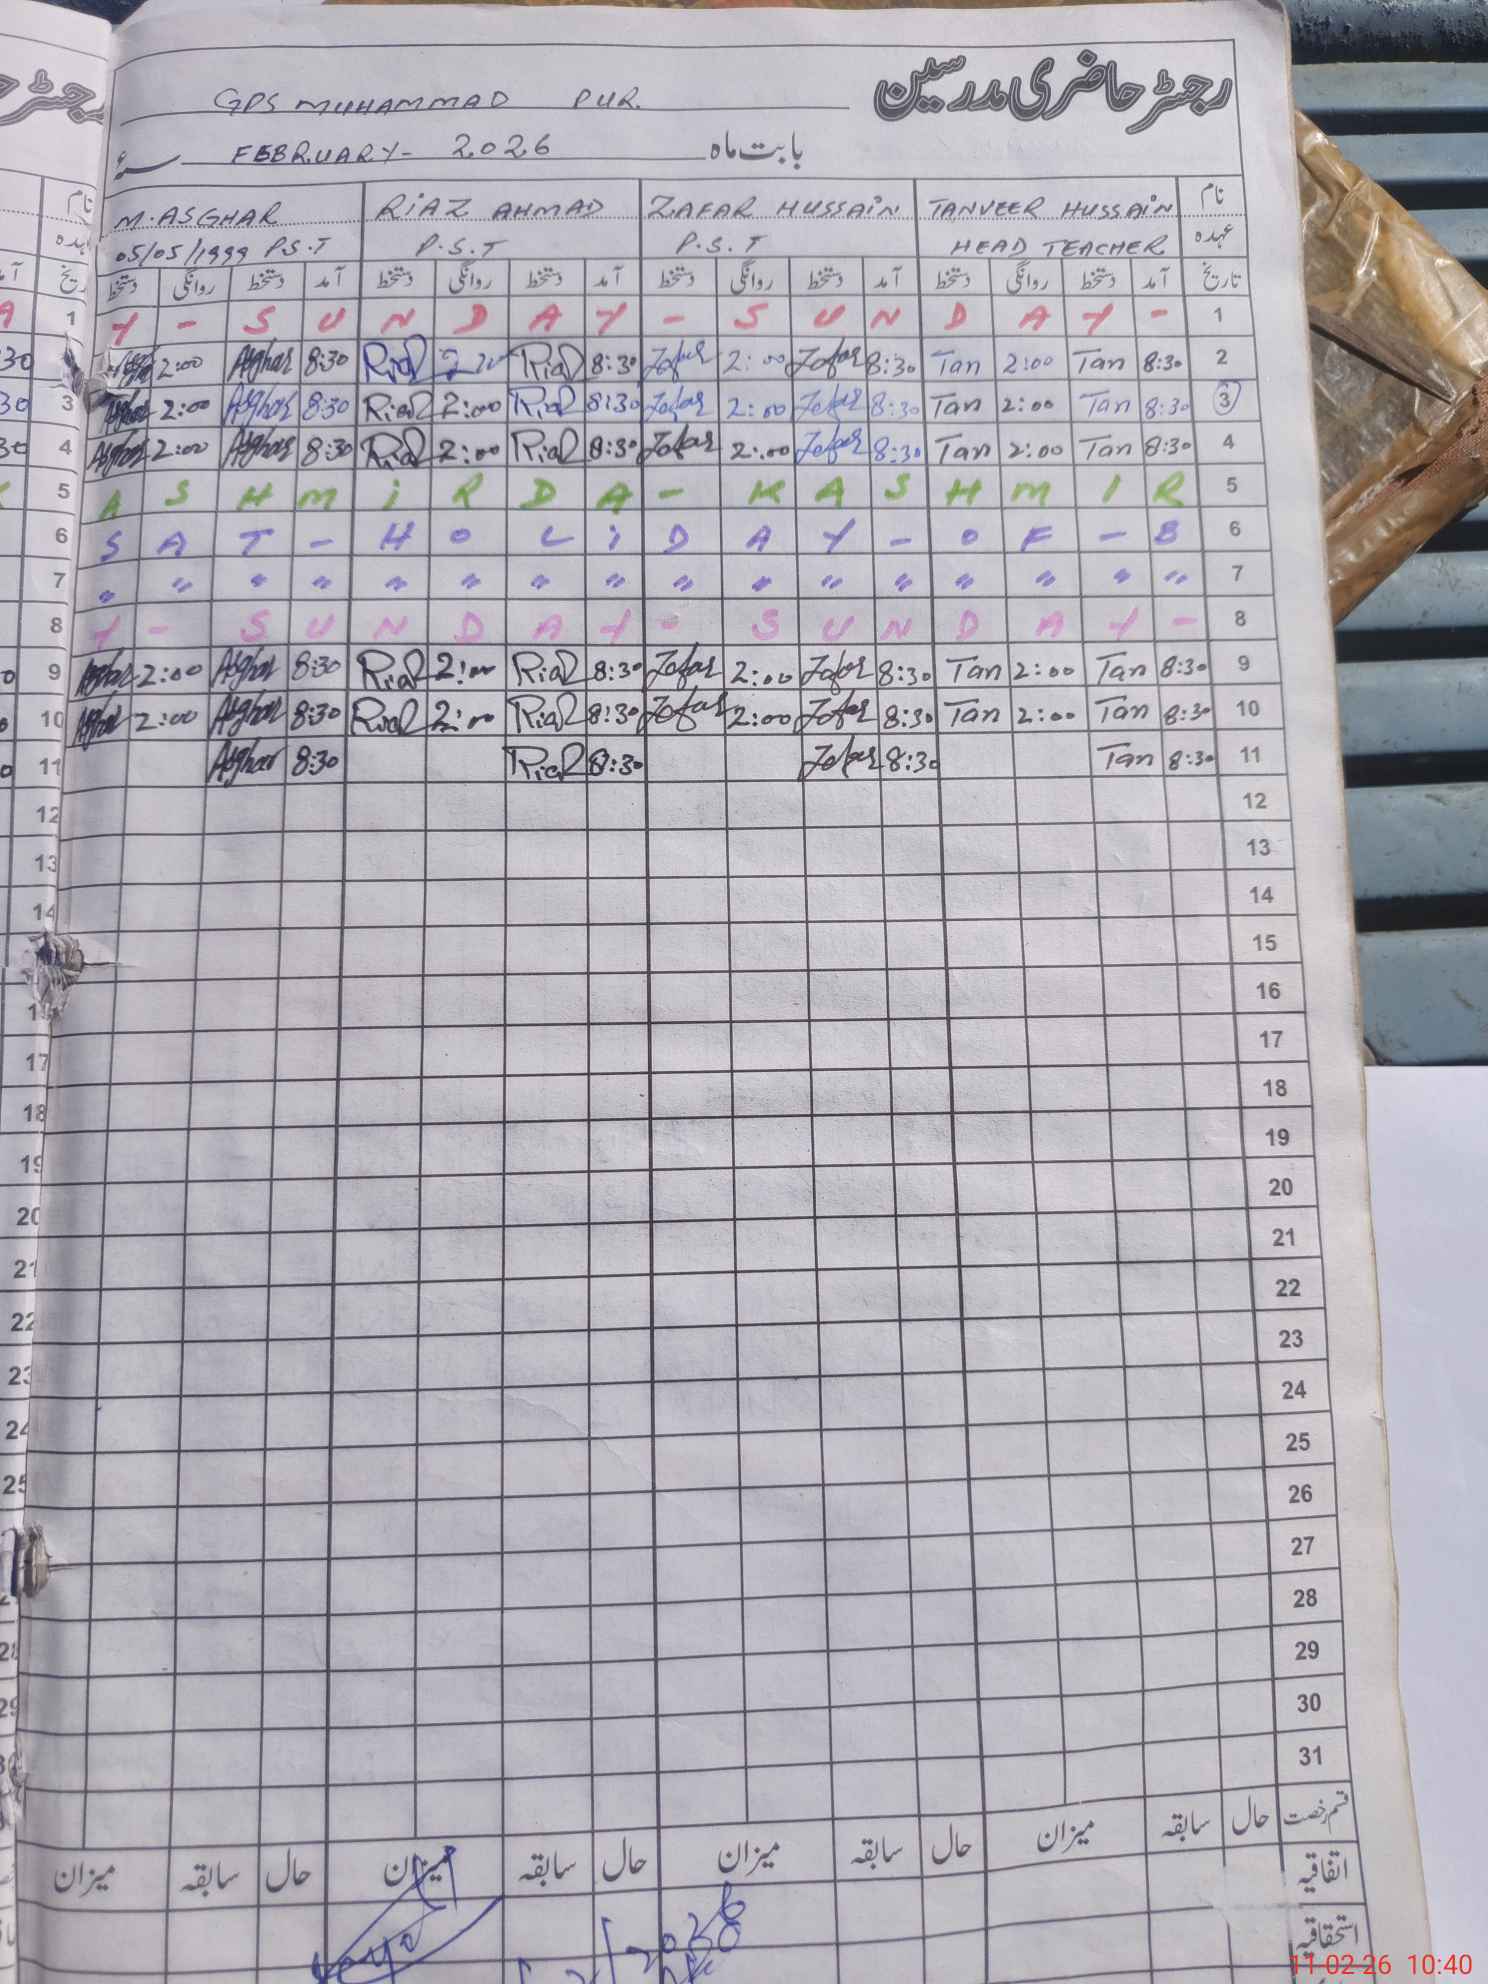 رجسٹر حاضری مدرسین
GPS MUHAMMAD PUR.
بابت ماہ FEBRUARY - 2026 سنہء
نام TANVEER HUSSAIN ZAFAR HUSSAIN RiAZ AHMAD M. ASGHAR
عہدہ HEAD TEACHER P.S.T P.S.T 05/05/1999 P.S.T
تاریخ آمد دستخط روانگی دستخط آمد دستخط روانگی دستخط آمد دستخط روانگی دستخط آمد دستخط روانگی دستخط
1 Y - S U N D A Y - S U N D A Y - 1
2:00 Asghar 8:30 Riaz Riaz 8:30 Zafar 2:00 Zafar 8:30 Tan 2:00 Tan 8:30 2
3 Asghar 2:00 Asghar 8:30 Riaz 2:00 Riaz 8:30 Zafar 2:00 Zafar 8:30 Tan 2:00 Tan 8:30 3
4 Asghar 2:00 Asghar 8:30 Riaz 2:00 Riaz 8:30 Zafar 2:00 Zafar 8:30 Tan 2:00 Tan 8:30 4
5 A S H M i R D A - K A S H M I R 5
6 S A T - H O L i D A Y - O F - B 6
7 " " " " " " " " " " " " " " " " 7
8 Y - S U N D A Y - S U N D A Y - 8
9 Asghar 2:00 Asghar 8:30 Riaz 2:00 Riaz 8:30 Zafar 2:00 Zafar 8:30 Tan 2:00 Tan 8:30 9
10 Asghar 2:00 Asghar 8:30 Riaz 2:00 Riaz 8:30 Zafar 2:00 Zafar 8:30 Tan 2:00 Tan 8:30 10
11 Asghar 8:30 Riaz 8:30 Zafar 8:30 Tan 8:30 11
12 12
13 13
14 14
15
16
17 17
18 18
19 19
20 20
21 21
22 22
23 23
24 24
25 25
26
27
28 28
29 29
30
31
قسم رخصت حال سابقہ میزان حال سابقہ میزان حال سابقہ میزان حال سابقہ میزان
اتفاقیہ
استحقاقیہ
11-02-26 10:40